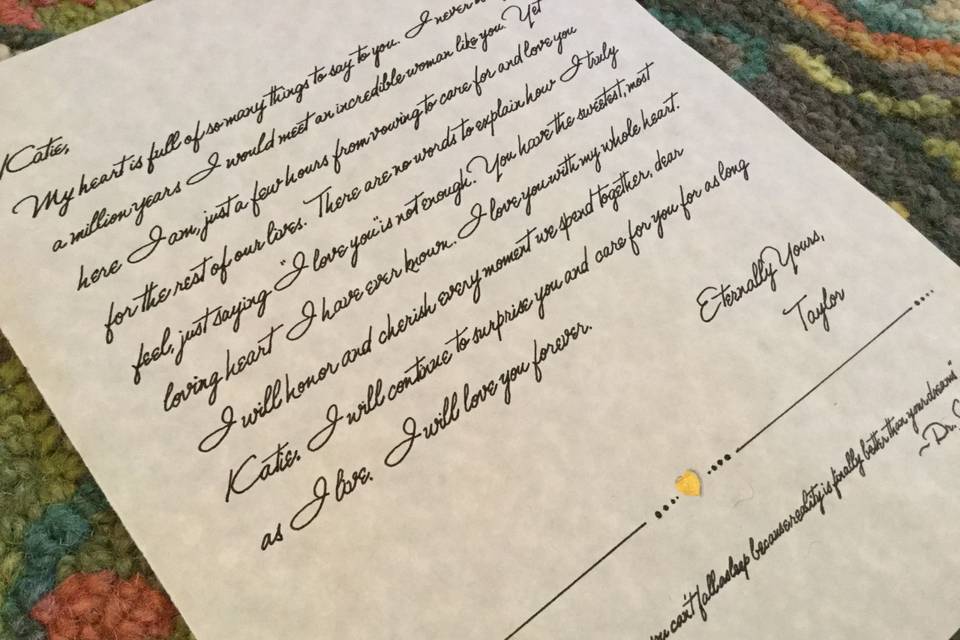 Katie,
My heart is full of so many things to say to you. I never
a million years I would meet an incredible woman like you. Yet
here I am, just a few hours from vowing to care for and love you
for the rest of our lives. There are no words to explain how I truly
feel, just saying "I love you" is not enough. You have the sweetest, most
loving heart I have ever known. I love you with my whole heart.
I will honor and cherish every moment we spend together, dear
Katie. I will continue to surprise you and care for you for as long
as I live. I will love you forever.
Eternally Yours,
Taylor
you can't fall asleep because reality is finally better than your dreams"
~Dr.